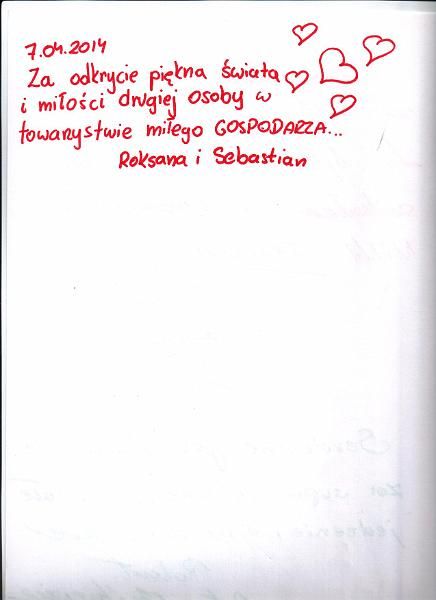 7.04.2014
Za odkrycie piękna świata
i miłości drugiej osoby w
towarzystwie miłego GOSPODARZA...
Roksana i Sebastian